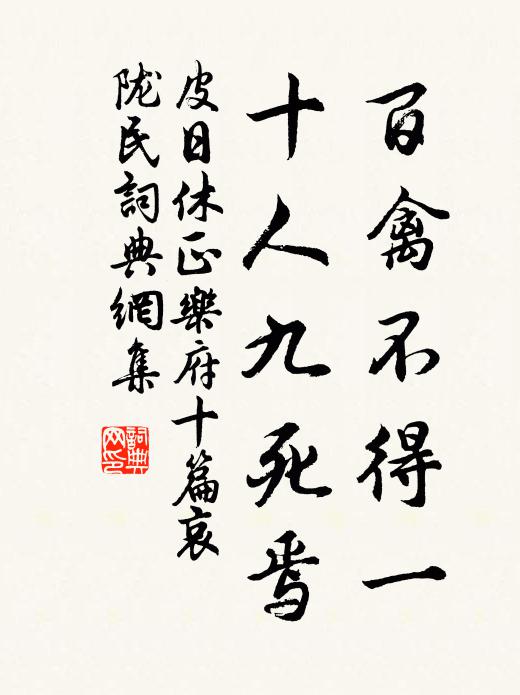 百禽不得一
十人九死焉
皮日休正樂府十篇哀
陇民詞典網集
詞典网印